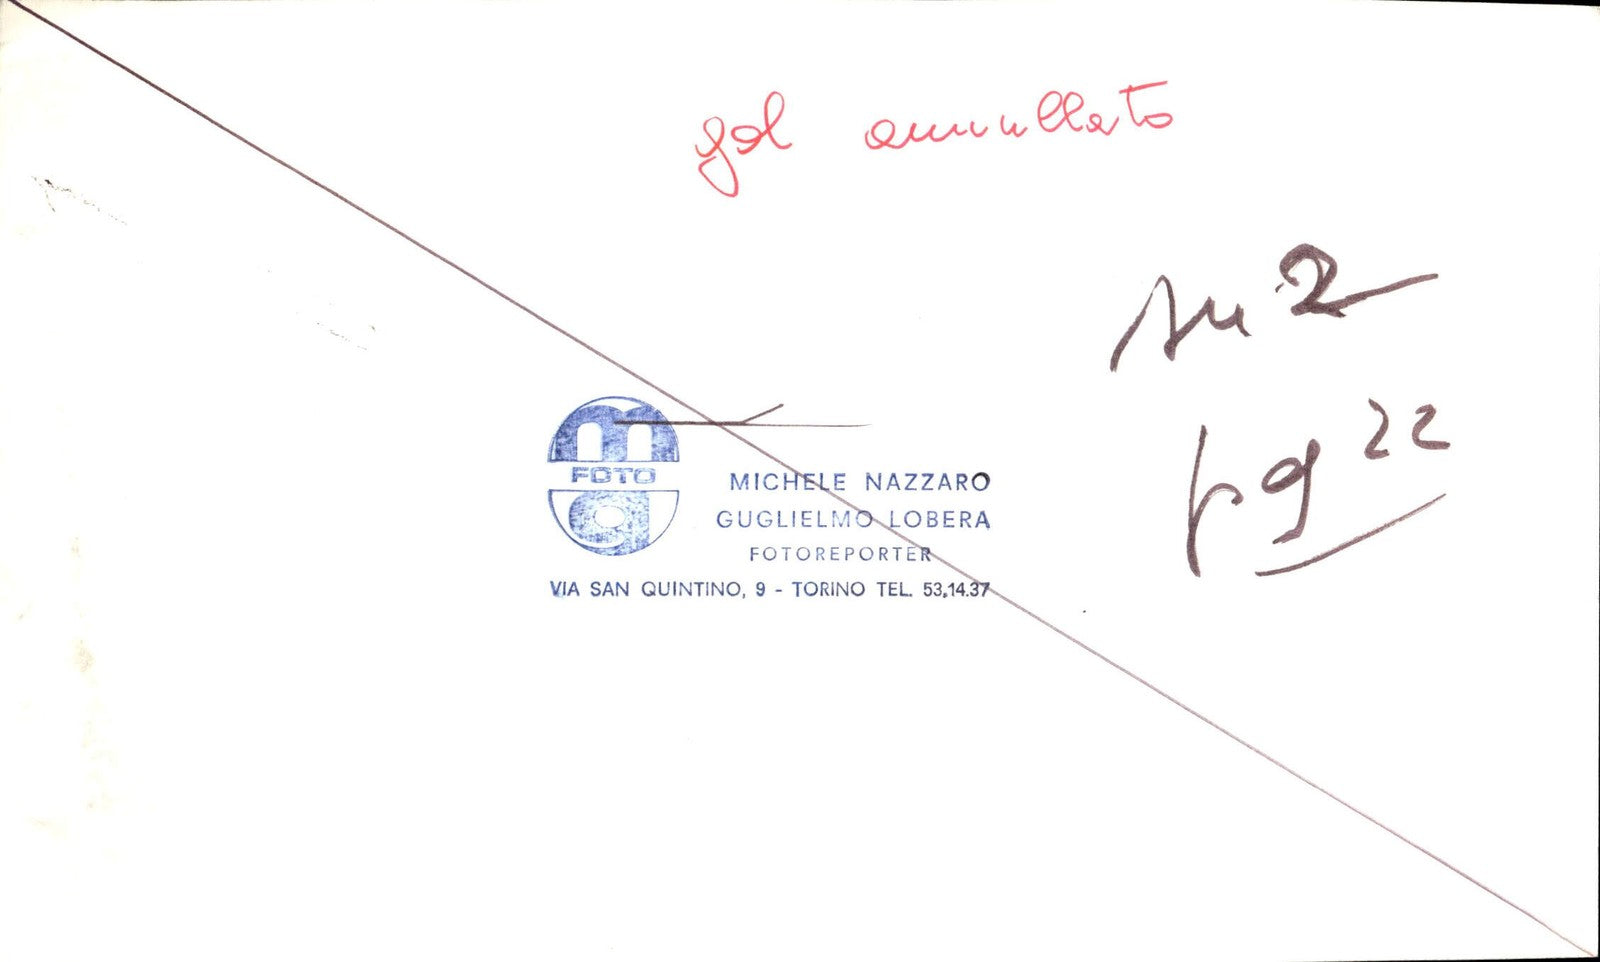 gol annullato
su 2
pg 22
m
FOTO
g
MICHELE NAZZARO
GUGLIELMO LOBERA
FOTOREPORTER
VIA SAN QUINTINO, 9 - TORINO TEL. 53.14.37